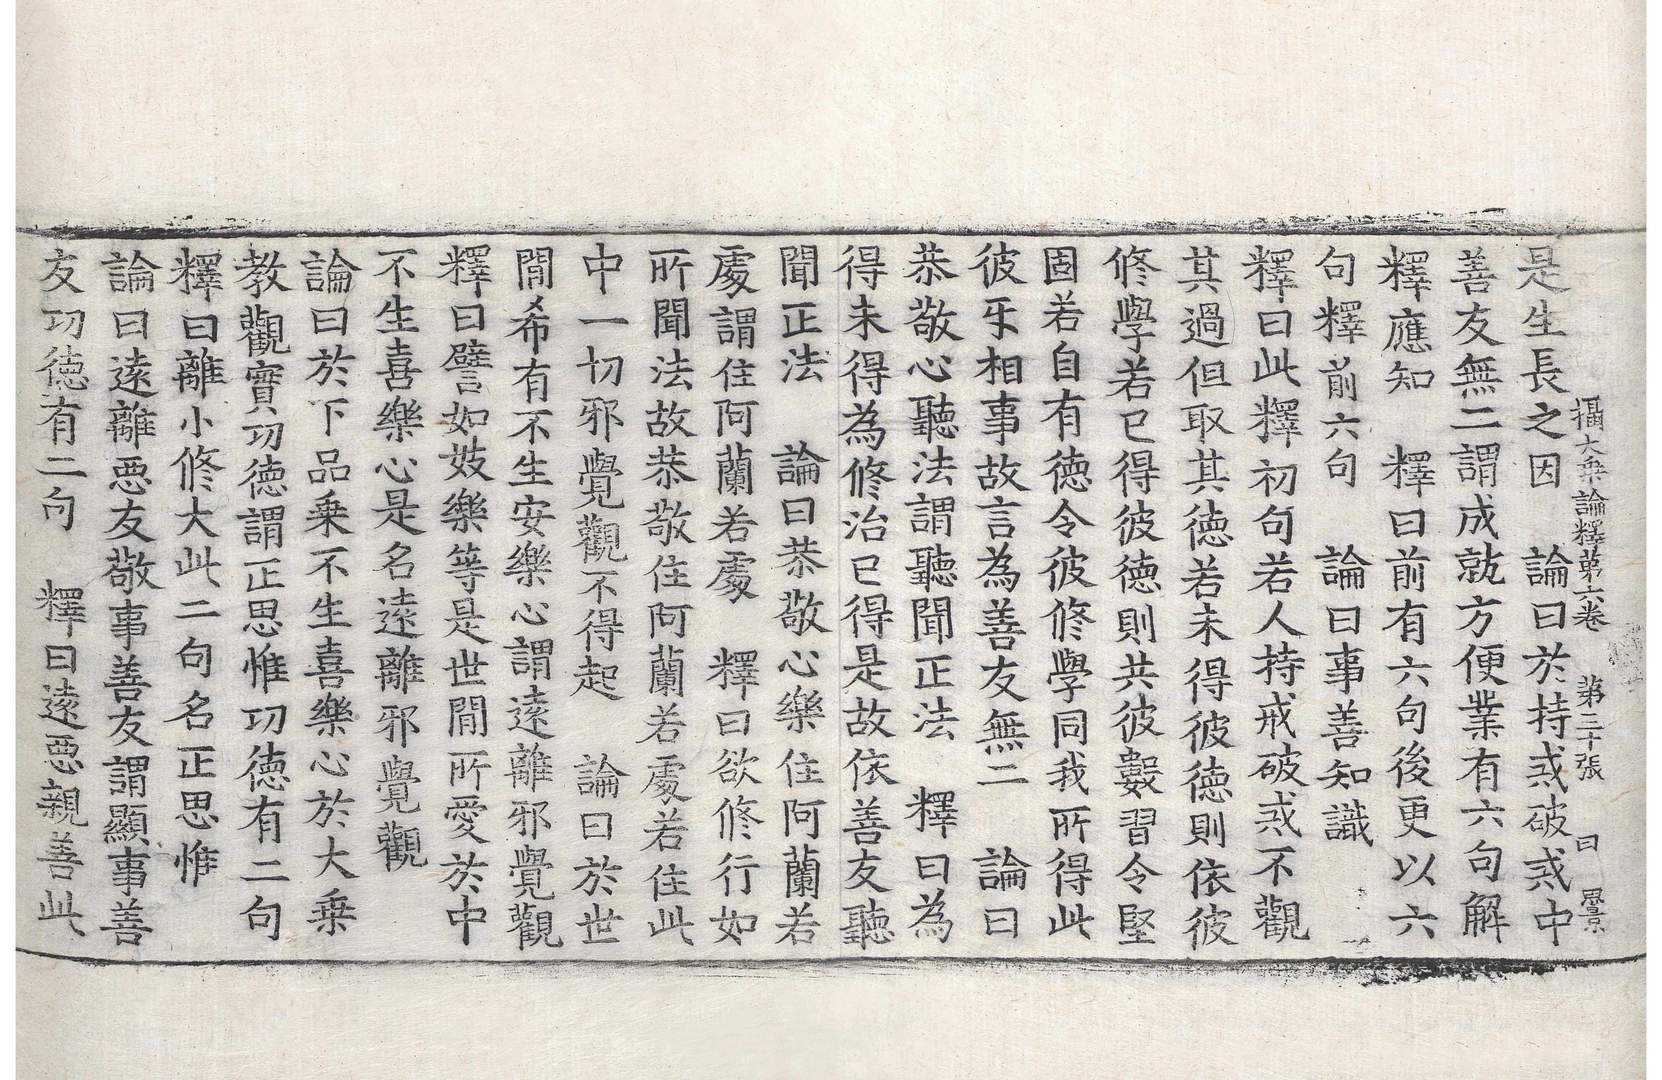 攝大乗論釋第六卷 第三十張 曰
是生長之因 論曰於持戒破戒中
善友無二謂成就方便業有六句解
釋應知 釋曰前有六句後更以六
句釋前六句 論曰事善知識
釋曰此釋初句若人持戒破戒不觀
其過但取其徳若未得彼徳則依彼
修學若已得彼徳則共彼數習令堅
固若自有徳令彼修學同我所得此
彼互相事故言為善友無二 論曰
恭敬心聽法謂聽聞正法 釋曰為
得未得為修治已得是故依善友聽
聞正法 論曰恭敬心樂住阿蘭若
處謂住阿蘭若處 釋曰欲修行如
所聞法故恭敬住阿蘭若處若住此
中一切邪覺觀不得起 論曰於世
間希有不生安樂心謂遠離邪覺觀
釋曰譬如妓樂等是世間所愛於中
不生喜樂心是名遠離邪覺觀
論曰於下品乗不生喜樂心於大乗
教觀實功徳謂正思惟功徳有二句
釋曰離小修大此二句名正思惟
論曰遠離悪友敬事善友謂顯事善
友功徳有二句 釋曰遠悪親善此